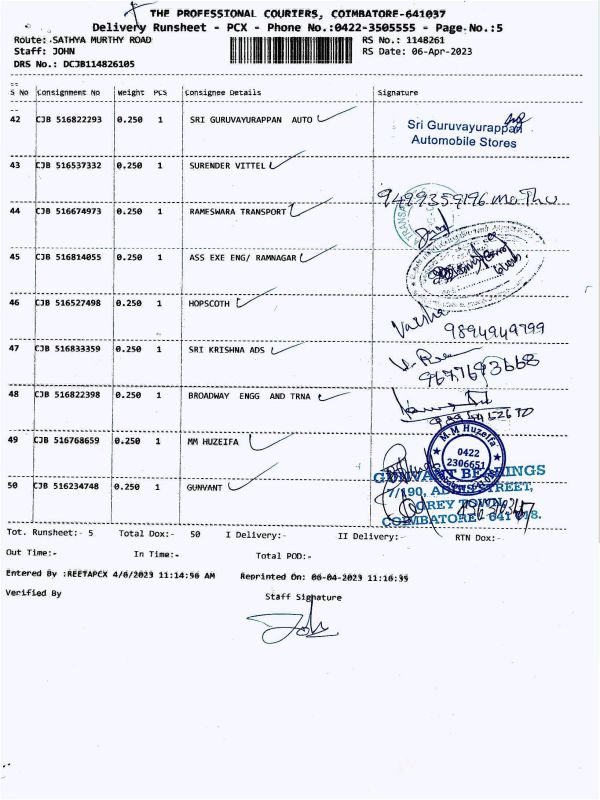 THE PROFESSIONAL COURIERS, COIMBATORE-641037
Delivery Runsheet - PCX - Phone No.:0422-3505555 - Page No.:5
Route: SATHYA MURTHY ROAD RS No.: 1148261
Staff: JOHN RS Date: 06-Apr-2023
DRS No.: DCJB114826105
S No Consignment No Weight PCS Consignee Details Signature
42 CJB 516822293 0.250 1 SRI GURUVAYURAPPAN AUTO
Sri Guruvayurappan
Automobile Stores
43 CJB 516537332 0.250 1 SURENDER VITTEL
9499359196 Mathu
44 CJB 516674973 0.250 1 RAMESWARA TRANSPORT
45 CJB 516814055 0.250 1 ASS EXE ENG/ RAMNAGAR
46 CJB 516527498 0.250 1 HOPSCOTH
9894949799
47 CJB 516833359 0.250 1 SRI KRISHNA ADS
9677693668
48 CJB 516822398 0.250 1 BROADWAY ENGG AND TRNA
49 CJB 516768659 0.250 1 MM HUZEIFA
M.M Huzeifa
0422
2306651
50 CJB 516234748 0.250 1 GUNVANT
GUNVANT BEARINGS
STREET,
GREY TOWN,
COIMBATORE - 641 018.
Tot. Runsheet:- 5 Total Dox:- 50 I Delivery:- II Delivery:- RTN Dox:-
Out Time:- In Time:- Total POD:-
Entered By :REETAPCX 4/6/2023 11:14:56 AM Reprinted On: 06-04-2023 11:16:35
Verified By Staff Signature
John